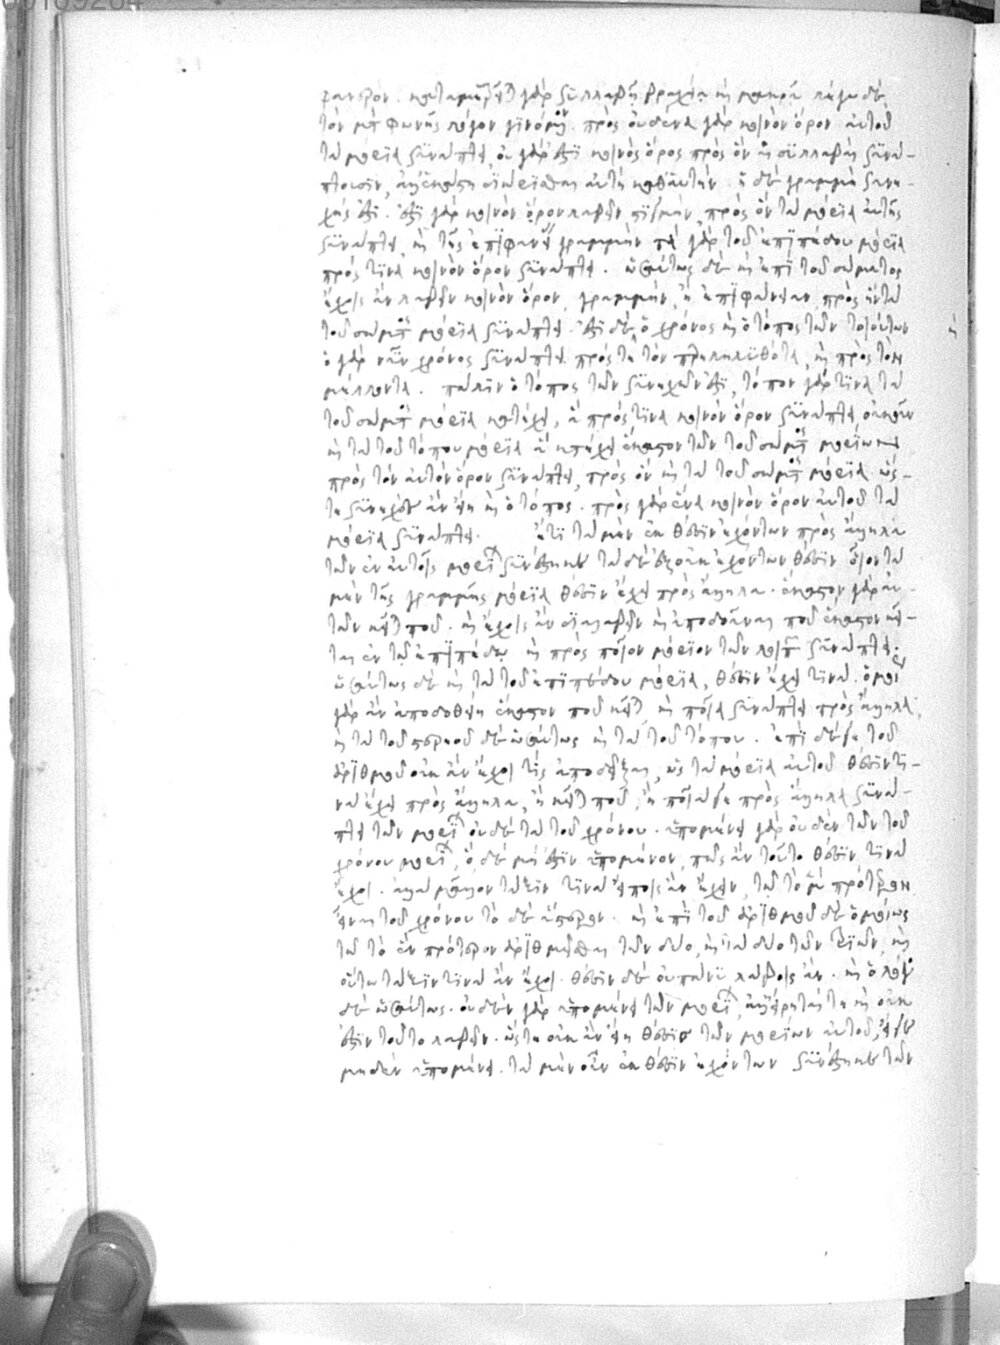 φανερόν. καταμετρεῖται γὰρ συλλαβῇ βραχείᾳ καὶ μακρᾷ λέγω δὲ
τὸν μετὰ φωνῆς λόγον γινόμενον. πρὸς οὐδένα γὰρ κοινὸν ὅρον αὐτοῦ
τὰ μόρια συνάπτει, οὐ γάρ ἐστι κοινὸς ὅρος πρὸς ὃν αἱ συλλαβαὶ συνά-
πτουσιν, ἀλλ' ἑκάστη διώρισται αὐτὴ καθ' αὑτήν. ἡ δὲ γραμμὴ συνε-
χής ἐστι. ἔστι γὰρ κοινὸν ὅρον λαβεῖν στιγμήν, πρὸς ὃν τὰ μόρια αὐτῆς
συνάπτει, καὶ τῆς ἐπιφανείας γραμμήν τὰ γὰρ τοῦ ἐπιπέδου μόρια
πρός τινα κοινὸν ὅρον συνάπτει. ὡσαύτως δὲ καὶ ἐπὶ τοῦ σώματος
ἔχοις ἂν λαβεῖν κοινὸν ὅρον, γραμμήν, ἢ ἐπιφάνειαν, πρὸς ἣν τὰ
τοῦ σώματος μόρια συνάπτει. ἔστι δὲ ὁ χρόνος καὶ ὁ τόπος τῶν τοιούτων
ὁ γὰρ νῦν χρόνος συνάπτει πρός τε τὸν παρεληλυθότα, καὶ πρὸς τὸν
μέλλοντα. πάλιν ὁ τόπος τῶν συνεχῶν ἐστι, τόπον γάρ τινα τὰ
τοῦ σώματος μόρια κατέχει, ἃ πρός τινα κοινὸν ὅρον συνάπτει οὐκοῦν
καὶ τὰ τοῦ τόπου μόρια ἃ κατέχει ἕκαστον τῶν τοῦ σώματος μορίων
πρὸς τὸν αὐτὸν ὅρον συνάπτει, πρὸς ὃν καὶ τὰ τοῦ σώματος μόρια. ὥς-
τε συνεχὴς ἂν εἴη καὶ ὁ τόπος. πρὸς γὰρ ἕνα κοινὸν ὅρον αὐτοῦ τὰ
μόρια συνάπτει. ἔτι τὰ μὲν ἐκ θέσιν ἐχόντων πρὸς ἄλληλα
τῶν ἐν αὐτοῖς μορίων συνέστηκε τὰ δὲ ἐξ οὐκ ἐχόντων θέσιν οἷον τὰ
μὲν τῆς γραμμῆς μόρια θέσιν ἔχει πρὸς ἄλληλα. ἕκαστον γὰρ αὐ-
τῶν κεῖται που. καὶ ἔχοις ἂν διαλαβεῖν καὶ ἀποδοῦναι ποῦ ἕκαστον κεῖ-
ται ἐν τῷ ἐπιπέδῳ καὶ πρὸς ποῖον μόριον τῶν λοιπῶν συνάπτει.
ὡσαύτως δὲ καὶ τὰ τοῦ ἐπιπέδου μόρια, θέσιν ἔχει τινά. ὁμοίως
γὰρ ἂν ἀποδοθείη ἕκαστον ποῦ κεῖται καὶ ποῖα συνάπτει πρὸς ἄλληλα,
καὶ τὰ τοῦ στερεοῦ δὲ ὡσαύτως καὶ τὰ τοῦ τόπου. ἐπὶ δέ γε τοῦ
ἀριθμοῦ οὐκ ἂν ἔχοι τις ἀποδεῖξαι, ὡς τὰ μόρια αὐτοῦ θέσιν τι-
νὰ ἔχει πρὸς ἄλληλα, ἢ κεῖται που, ἢ ποῖα γε πρὸς ἄλληλα συνά-
πτει τῶν μορίων οὐδὲ τὰ τοῦ χρόνου. ὑπομένει γὰρ οὐδὲν τῶν τοῦ
χρόνου μορίων, ὃ δὲ μή ἐστιν ὑπομένον, πῶς ἂν τοῦτο θέσιν τινὰ
ἔχοι. ἀλλὰ μᾶλλον τάξιν τινὰ εἴποις ἂν ἔχειν, τῷ τὸ μὲν πρότερον
εἶναι τοῦ χρόνου τὸ δὲ ὕστερον. καὶ ἐπὶ τοῦ ἀριθμοῦ δὲ ὁμοίως
τῷ τὸ ἓν πρότερον ἀριθμεῖσθαι τῶν δύο, καὶ τὰ δύο τῶν τριῶν, καὶ
οὕτω τάξιν τινὰ ἂν ἔχοι. θέσιν δὲ οὐ πάνυ λάβοις ἄν. καὶ ὁ λόγος
δὲ ὡσαύτως. οὐδὲν γὰρ ὑπομένει τῶν μορίων, ἀλλ' εἴρηταί τε καὶ οὐκ
ἔστιν τοῦτο λαβεῖν. ὥστε οὐκ ἂν εἴη θέσις τῶν μορίων αὐτοῦ, εἴγε
μηδὲν ὑπομένει. τὰ μὲν οὖν ἐκ θέσιν ἐχόντων συνέστηκε τῶν